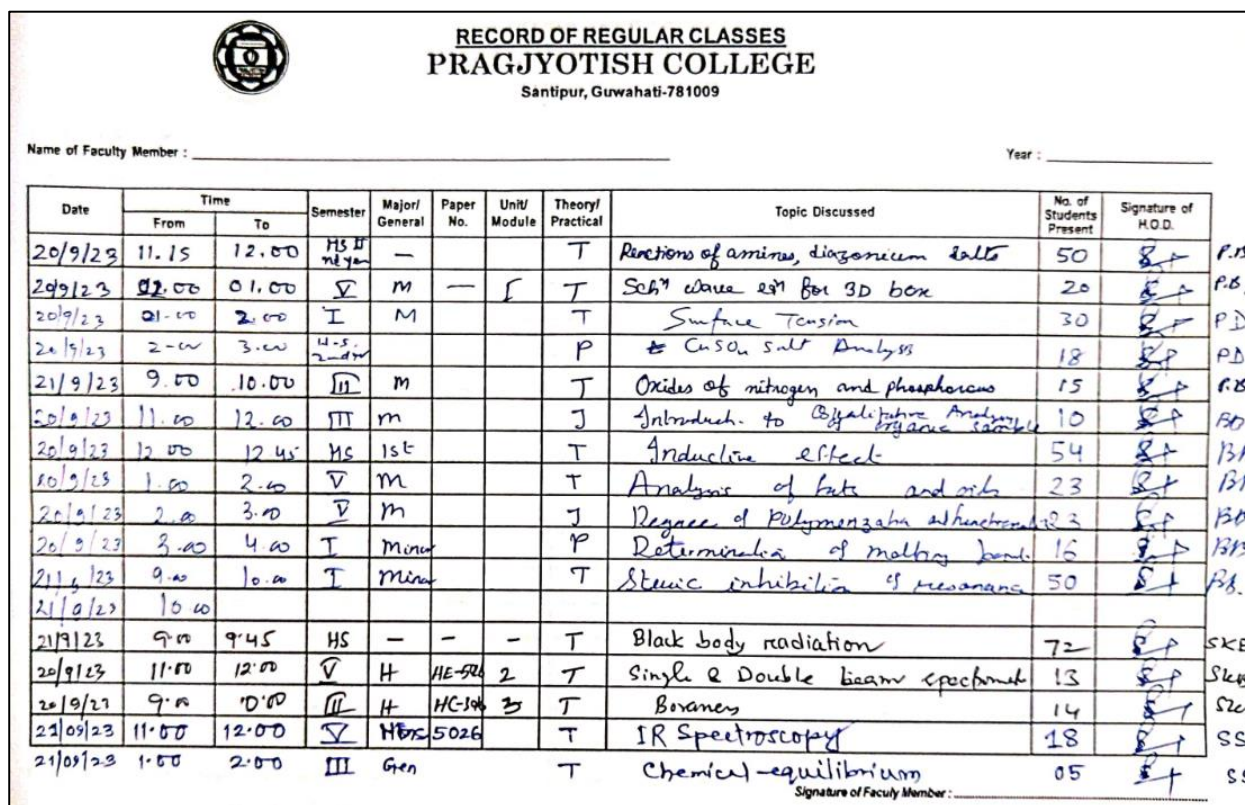 RECORD OF REGULAR CLASSES
PRAGJYOTISH COLLEGE
Santipur, Guwahati-781009
Name of Faculty Member : Year :
Date Time From To Semester Major/ General Paper No. Unit/ Module Theory/ Practical Topic Discussed No. of Students Present Signature of H.O.D.
20/9/23 11.15 12.00 HS II nd year — T Reactions of amines, diazonium salts 50 P.B
20/9/23 12.00 01.00 V M — I T Schⁿ wave eqⁿ for 3D box 20 P.B
20/9/23 01-00 2.00 I M T Surface Tension 30 PD
20/9/23 2-00 3.00 H.S. 2nd yr P CuSO₄ salt Analysis 18 PD
21/9/23 9.00 10.00 III M T Oxides of nitrogen and phosphorous 15 P.B
20/9/23 11.00 12.00 III M T Introduch. to Qualitative Analysis organic sample 10
20/9/23 12 00 12 45 HS 1st T Inductive effect 54
20/9/23 1.00 2.00 V M T Analysis of fats and oils 23
20/9/23 2.00 3.00 V M T Degree of Polymerization 23
20/9/23 3.00 4.00 I Minor P Determination of melting point 16
21/9/23 9.00 10.00 I Minor T Steric inhibition of resonance 50
21/9/23 10 00
21/9/23 9.00 9.45 HS — — — T Black body radiation 72 SKB
20/9/23 11.00 12.00 V H 2 T Single & Double beam spectromet 13
20/9/23 9.00 10.00 III H 3 T Boranes 14
21/09/23 11.00 12.00 V 5026 T IR Spectroscopy 18 SS
21/09/23 1.00 2.00 III Gen T Chemical-equilibrium 05 SS
Signature of Faculy Member :